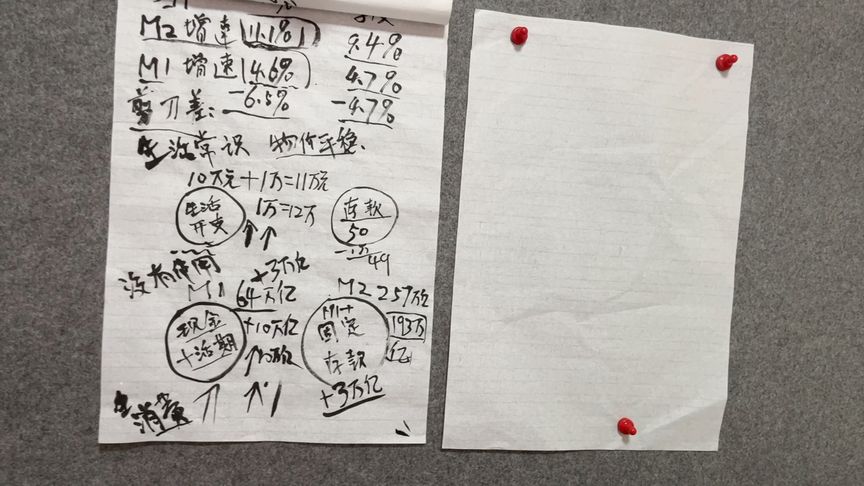 M2 增速 11.1% 9.4%
M1 增速 4.6% 4.7%
剪刀差: -6.5% -4.7%
生活常识 物价平稳、
10万元+1万=11万元
生活开支 1万=12万 存款 50
-1万 49
没有使用 +3万亿
M1 64万亿 M2 257万亿
现金+活期 +10万亿 M1+固定存款 193万亿
+3万亿
消费